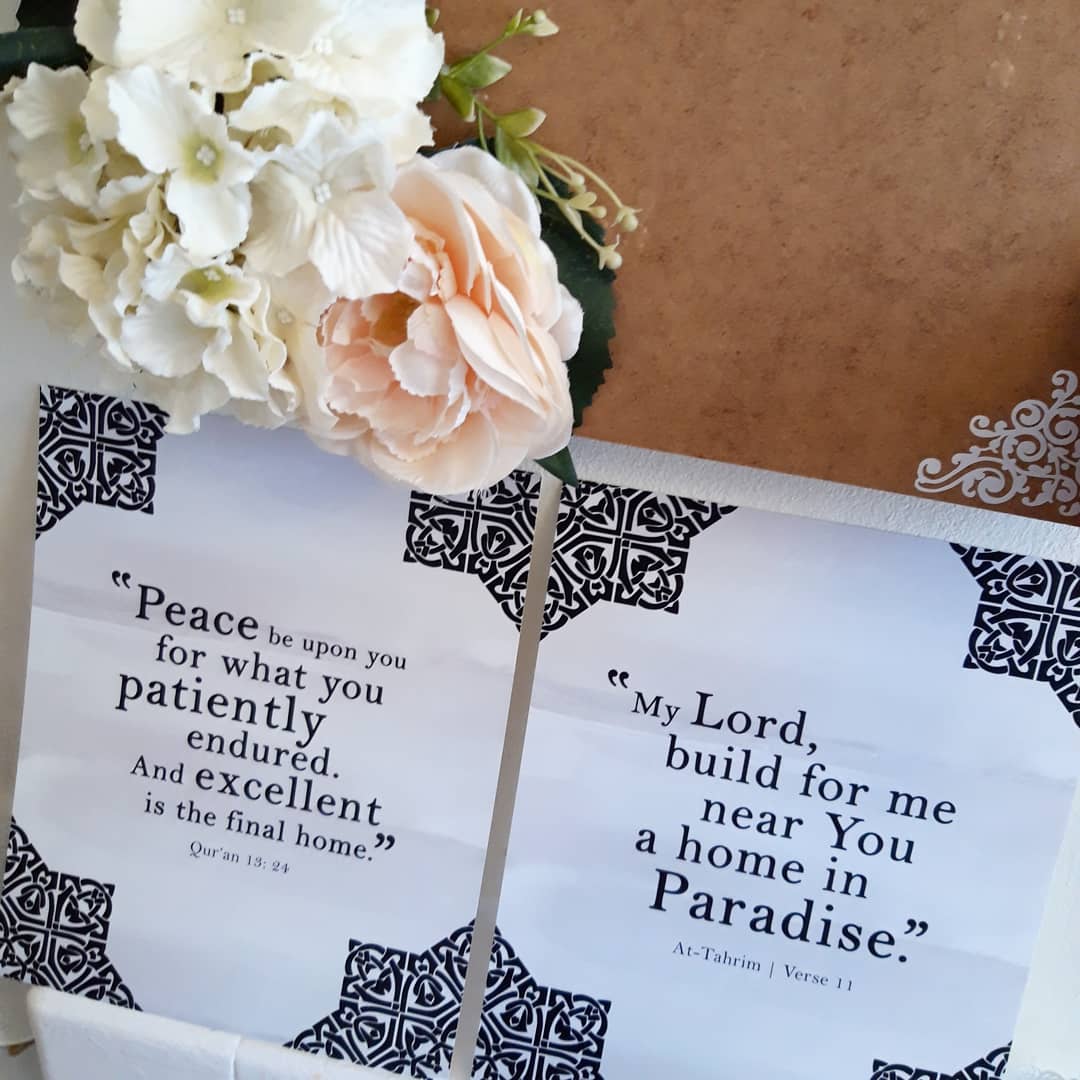 “Peace be upon you
for what you
patiently
endured.
And excellent
is the final home.”
Qur'an 13: 24
“My Lord,
build for me
near You
a home in
Paradise.”
At-Tahrim | Verse 11